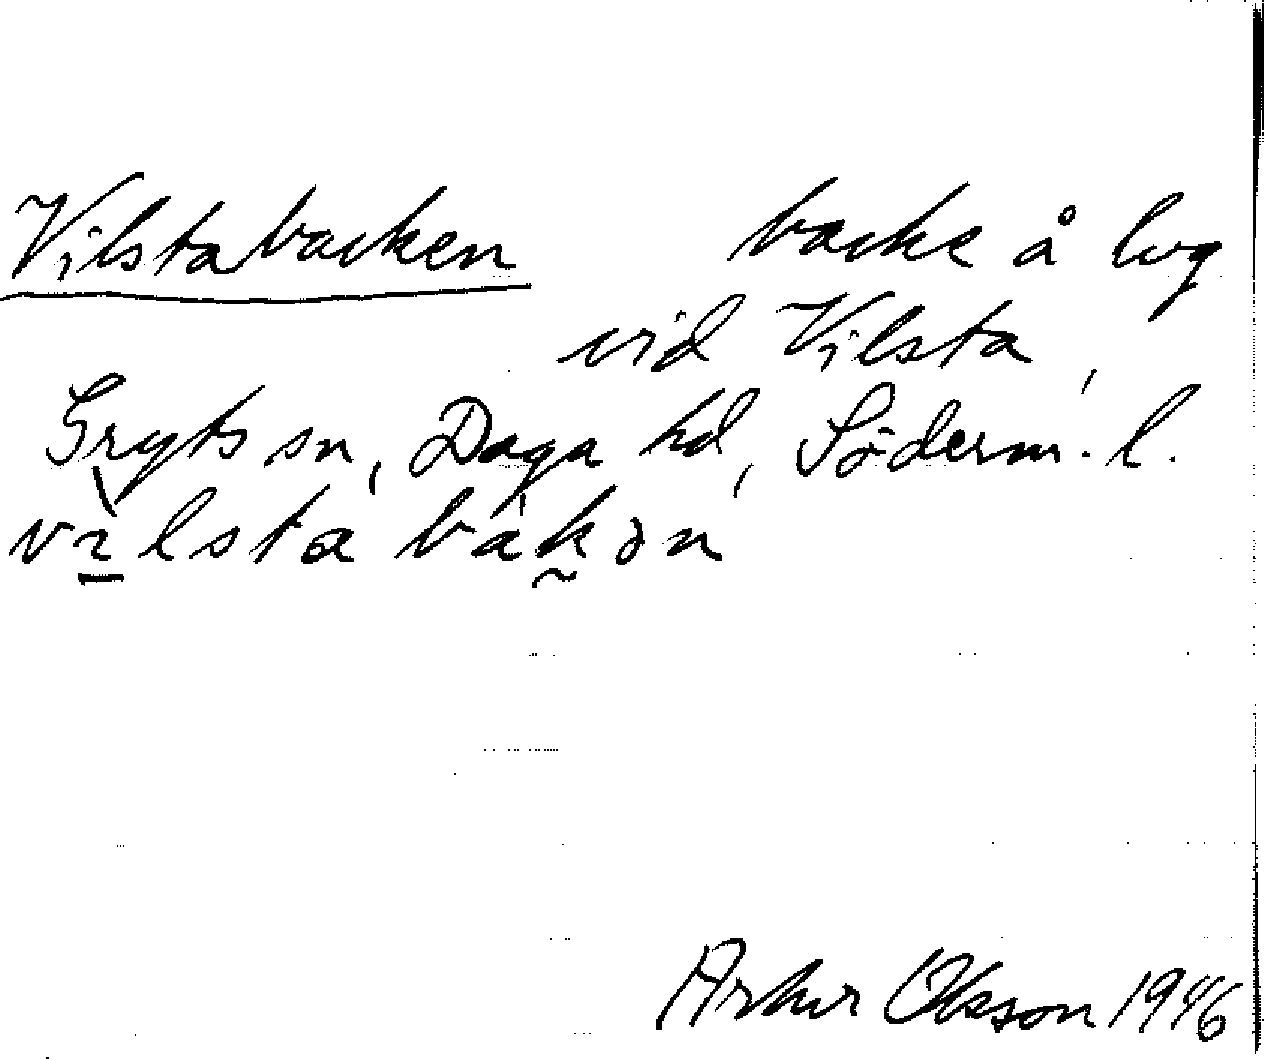 Vilstabacken backe å lvg
vid Vilsta,
Gryts sn, Daga hd, Söderm. l.
vìlstabákən
Arthur Olsson 1946